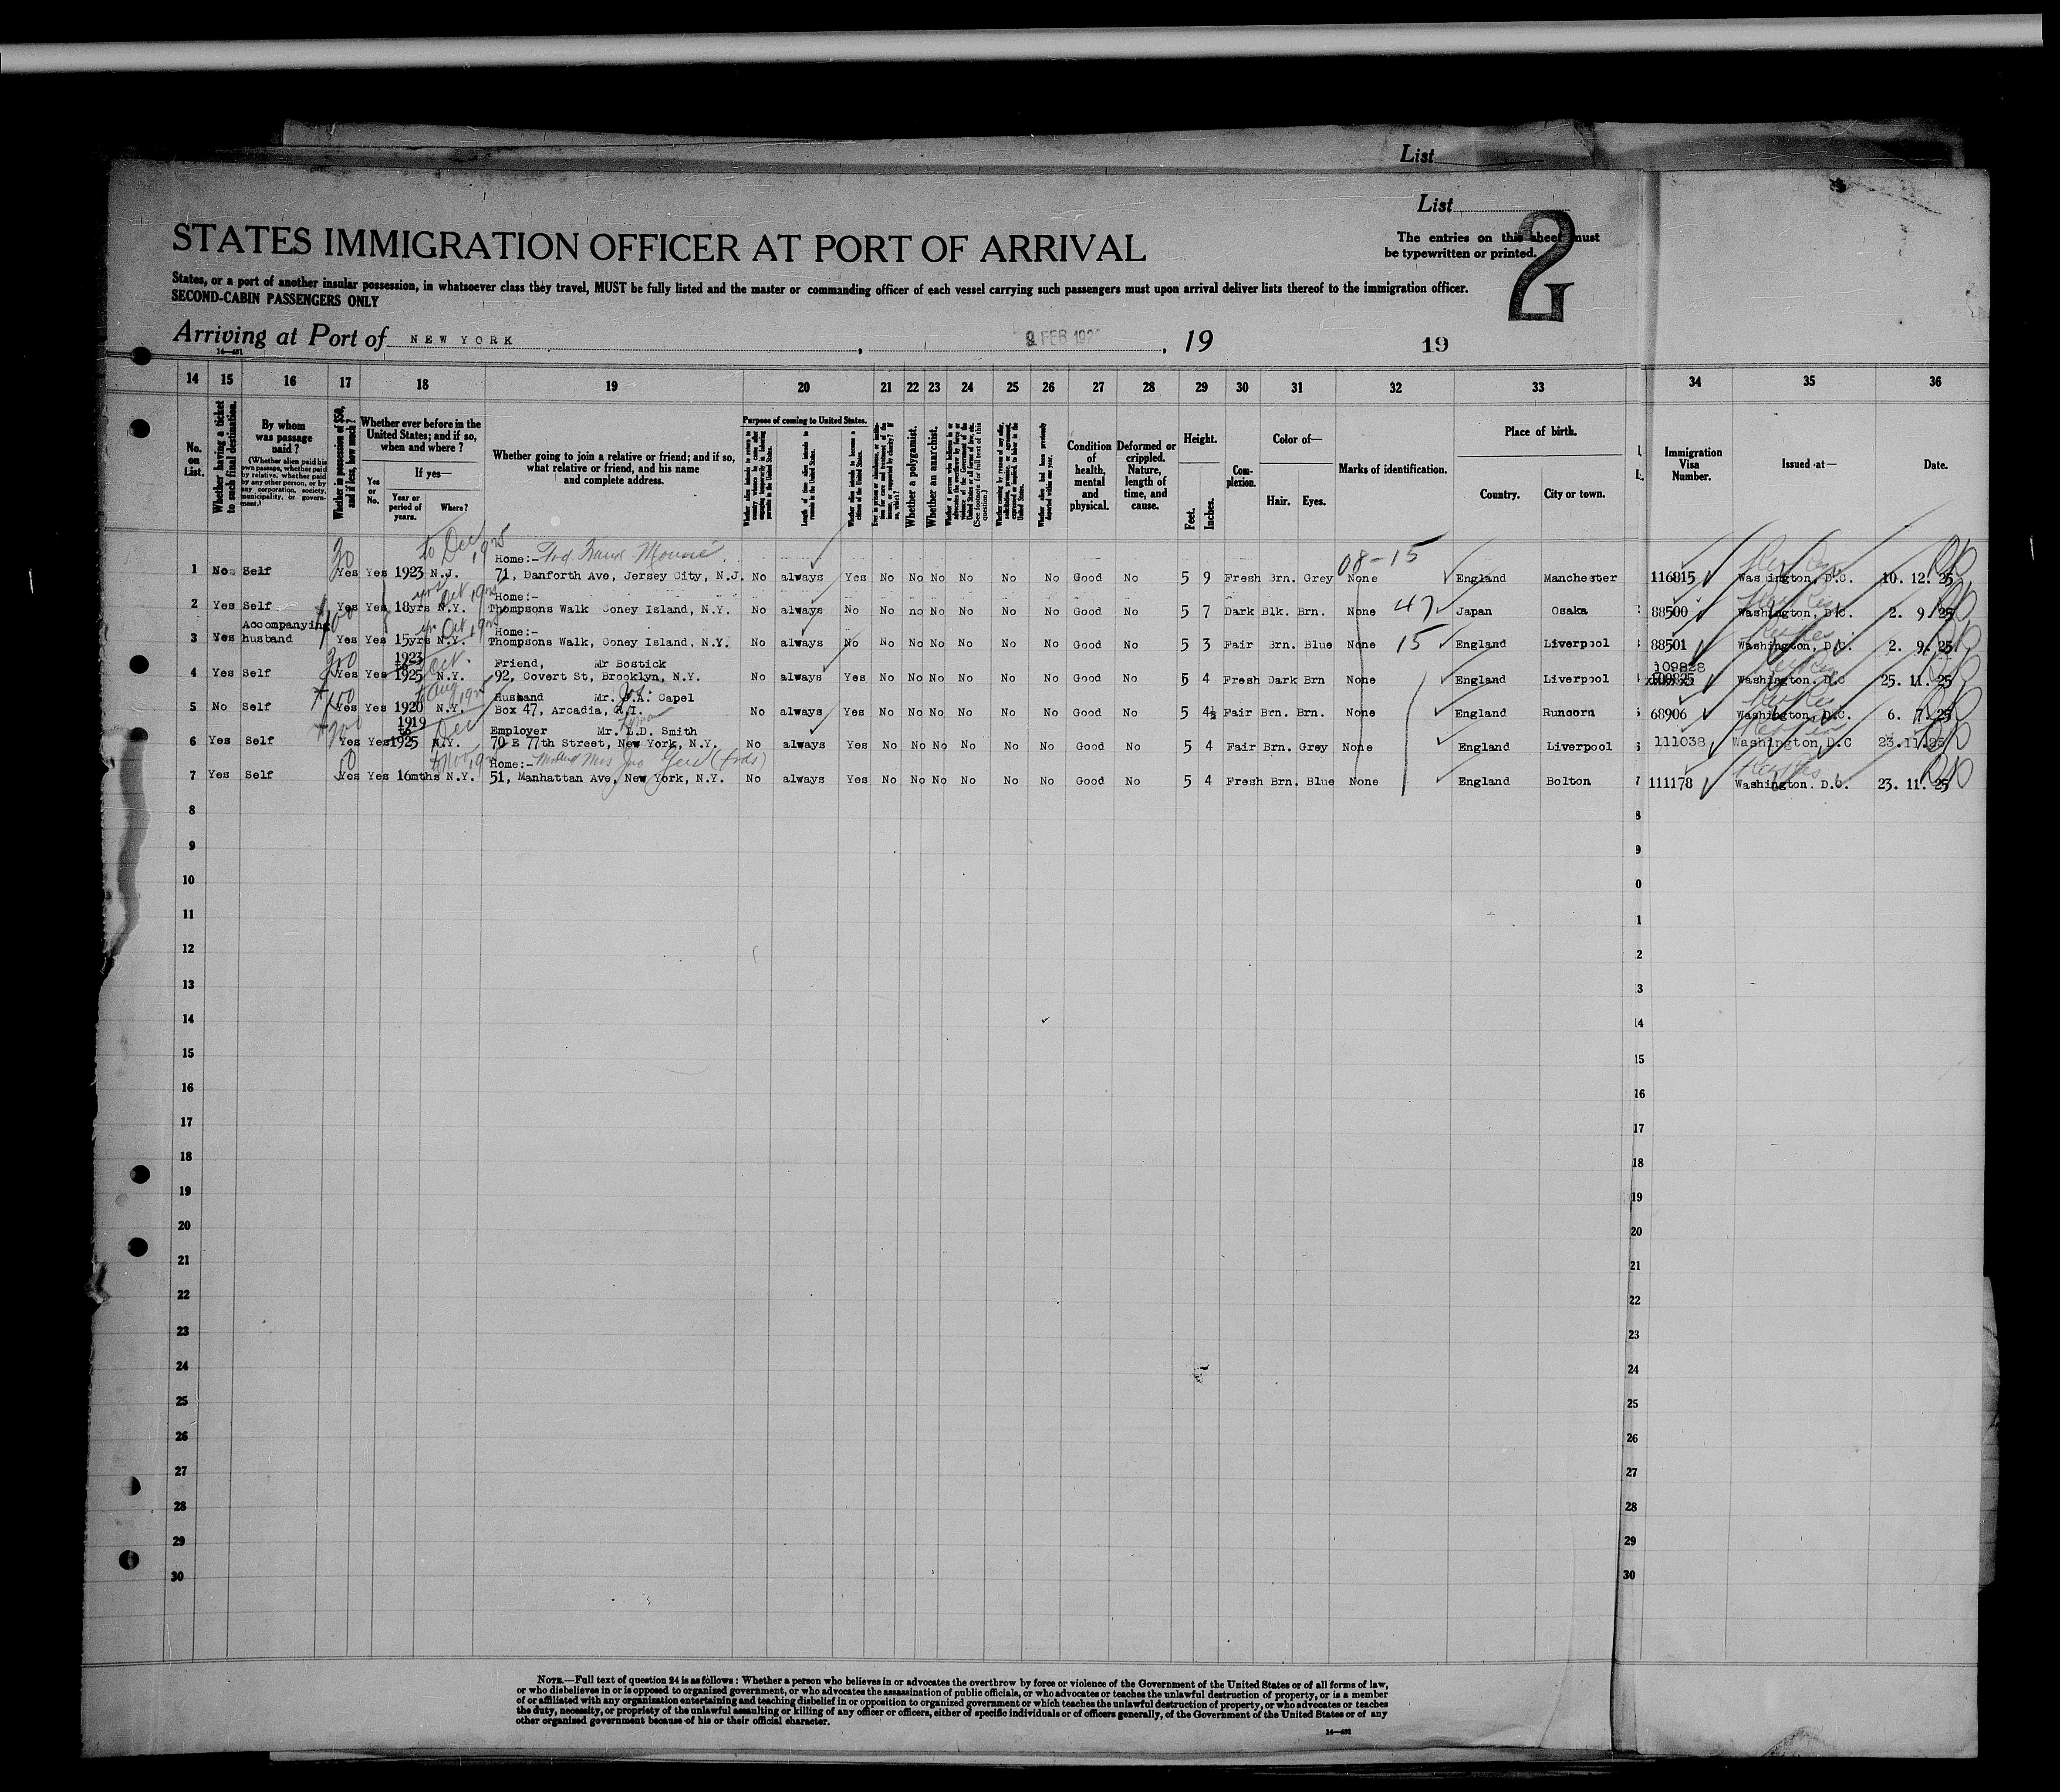 List
List
2
STATES IMMIGRATION OFFICER AT PORT OF ARRIVAL
The entries on this sheet must
be typewritten or printed.
States, or a port of another insular possession, in whatsoever class they travel, MUST be fully listed and the master or commanding officer of each vessel carrying such passengers must upon arrival deliver lists thereof to the immigration officer.
SECOND-CABIN PASSENGERS ONLY
Arriving at Port of NEW YORK, 9 FEB 192, 19 19
14—481
14 15 16 17 18 19 20 21 22 23 24 25 26 27 28 29 30 31 32 33 34 35 36
No. on List.
Whether having a ticket to such final destination.
By whom was passage paid?
(Whether alien paid his own passage, whether paid by relative, whether paid by any other person, or by any corporation, society, municipality, or government.)
Whether in possession of $50, and if less, how much?
Whether ever before in the United States; and if so, when and where?
Yes or No.
If yes—
Year or period of years.
Where?
Whether going to join a relative or friend; and if so, what relative or friend, and his name and complete address.
Purpose of coming to United States.
Length of time alien intends to remain in the United States.
Whether alien intends to become a citizen of the United States.
Whether a polygamist.
Whether an anarchist.
(See footnote for full text of this question.)
Condition of health, mental and physical.
Deformed or crippled. Nature, length of time, and cause.
Height.
Feet. Inches.
Complexion.
Color of—
Hair. Eyes.
Marks of identification.
Place of birth.
Country. City or town.
Immigration Visa Number.
Issued at—
Date.
to Dec 1925
30 Home:- 08-15
1 No Self Yes Yes 1923 N.J. 71, Danforth Ave, Jersey City, N.J. No always Yes No No No No No No Good No 5 9 Fresh Brn. Grey None England Manchester 116815 Washington, D.C. 10. 12. 25
Home:-
2 Yes Self Yes Yes 18yrs N.Y. Thompsons Walk Coney Island, N.Y. No always No No no No No No No Good No 5 7 Dark Blk. Brn. None 47 Japan Osaka 88500 Washington, D.C. 2. 9. 25
Accompanying Home:-
3 Yes husband Yes Yes 15yrs N.Y. Thompsons Walk, Coney Island, N.Y. No always No No No No No No No Good No 5 3 Fair Brn. Blue None 15 England Liverpool 88501 Washington, D.C. 2. 9. 25
1923 to Friend, Mr Bostick 109828
4 Yes Self Yes Yes 1925 N.Y. 92, Covert St, Brooklyn, N.Y. No always Yes No No No No No No Good No 5 4 Fresh Dark Brn None England Liverpool Washington. D.C 25. 11. 25
Husband Mr. J.A. Capel
5 No Self Yes Yes 1920 N.Y. Box 47, Arcadia, R.I. No always Yes No No No No No No Good No 5 4½ Fair Brn. Brn. None England Runcorn 68906 Washington, D.C. 6. 7. 25
1919 to Dec Employer Mr. L.D. Smith
6 Yes Self Yes Yes 1925 N.Y. 70 E 77th Street, New York, N.Y. No always Yes No No No No No No Good No 5 4 Fair Brn. Grey None England Liverpool 111038 Washington, D.C 23. 11. 25
Home:-
7 Yes Self Yes Yes 16mths N.Y. 51, Manhattan Ave, New York, N.Y. No always Yes No No No No No No Good No 5 4 Fresh Brn. Blue None England Bolton 111178 Washington. D.C. 23. 11. 25
8 8
9 9
10 0
11 1
12 2
13 3
14 14
15 15
16 16
17 17
18 18
19 19
20 20
21 21
22 22
23 23
24 24
25 25
26 26
27 27
28 28
29 29
30 30
NOTE.—Full text of question 24 is as follows: Whether a person who believes in or advocates the overthrow by force or violence of the Government of the United States or of all forms of law,
or who disbelieves in or is opposed to organized government, or who advocates the assassination of public officials, or who advocates or teaches the unlawful destruction of property, or is a member
of or affiliated with any organization entertaining and teaching disbelief in or opposition to organized government or which teaches the unlawful destruction of property, or who advocates or teaches
the duty, necessity, or propriety of the unlawful assaulting or killing of any officer or officers, either of specific individuals or of officers generally, of the Government of the United States or of any
other organized government because of his or their official character.
14—481